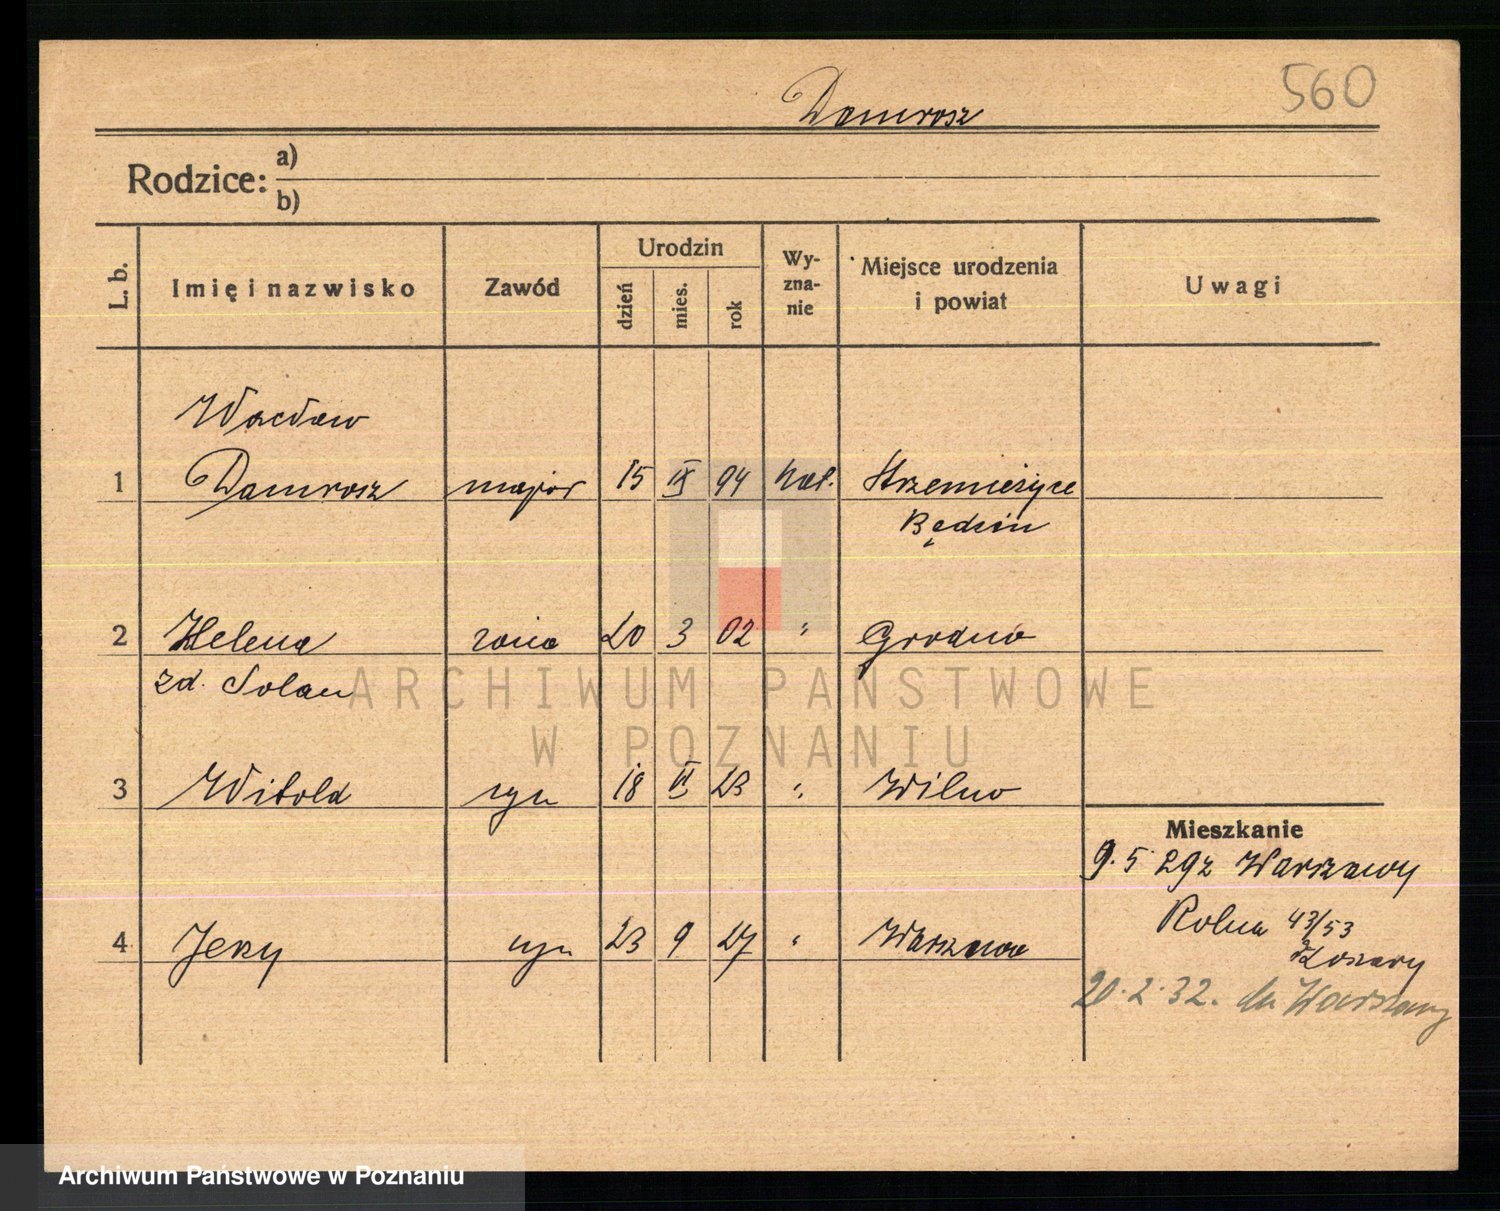 560
Damrosz
Rodzice: a)
b)
L. b. Imię i nazwisko Zawód Urodzin dzień mies. rok Wy-zna-nie Miejsce urodzenia i powiat Uwagi
Wacław
1 Damrosz major 15 IX 94 kat. Strzemieszyce
Będzin
2 Helena żona 20 3 02 " Grodno
zd. Solan
ARCHIWUM PAŃSTWOWE
W POZNANIU
3 Witold syn 18 VI 23 " Wilno
Mieszkanie
9.5 29 z Warszawy
4 Jerzy syn 23 9 27 " Warszawa
Rolna 43/53
20.2.32. do Warszawy
Archiwum Państwowe w Poznaniu